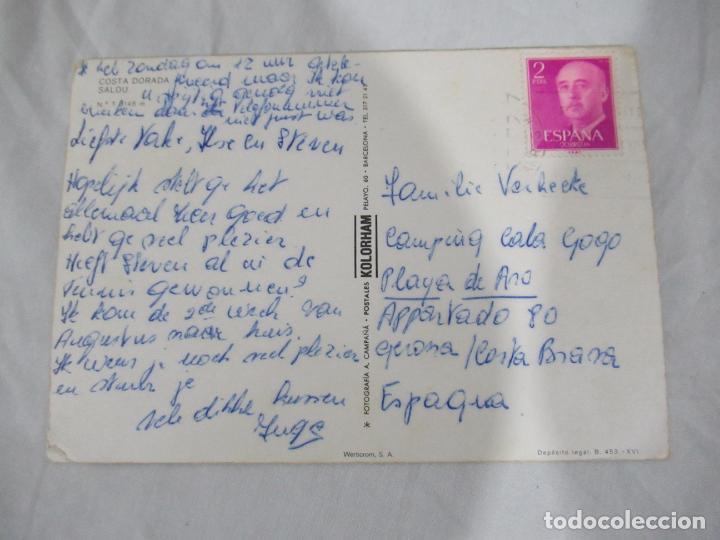 * heb zondag om 12 uur getele-
COSTA DORADA
foneerd maar ik kon
SALOU
niet
N.° 148
telefoonnummer
niet juist was
Liefste Vake, Ilse en Steven
Hopelijk stelt ge het
allemaal heel goed en
hebt ge veel plezier.
Heeft Steven al ni de
Tennis gewonnen?
Ik kom de 2de week van
Augustus naar huis.
Ik wens je noch veel plezier
en stuur je
vele dikke kussen
Inge
* FOTOGRAFIA A. CAMPAÑÁ - POSTALES KOLORHAM PELAYO, 60 - BARCELONA - TEL. 217 21 43
2
PTAS
ESPAÑA
CORREOS
Familie Verhecke
Camping Cala Gogo
Playa de Aro
Appartado 80
Gerona / Costa Brava
Espagna
Werticrom, S. A.
Depósito legal: B. 453 - XVI
todocoleccion